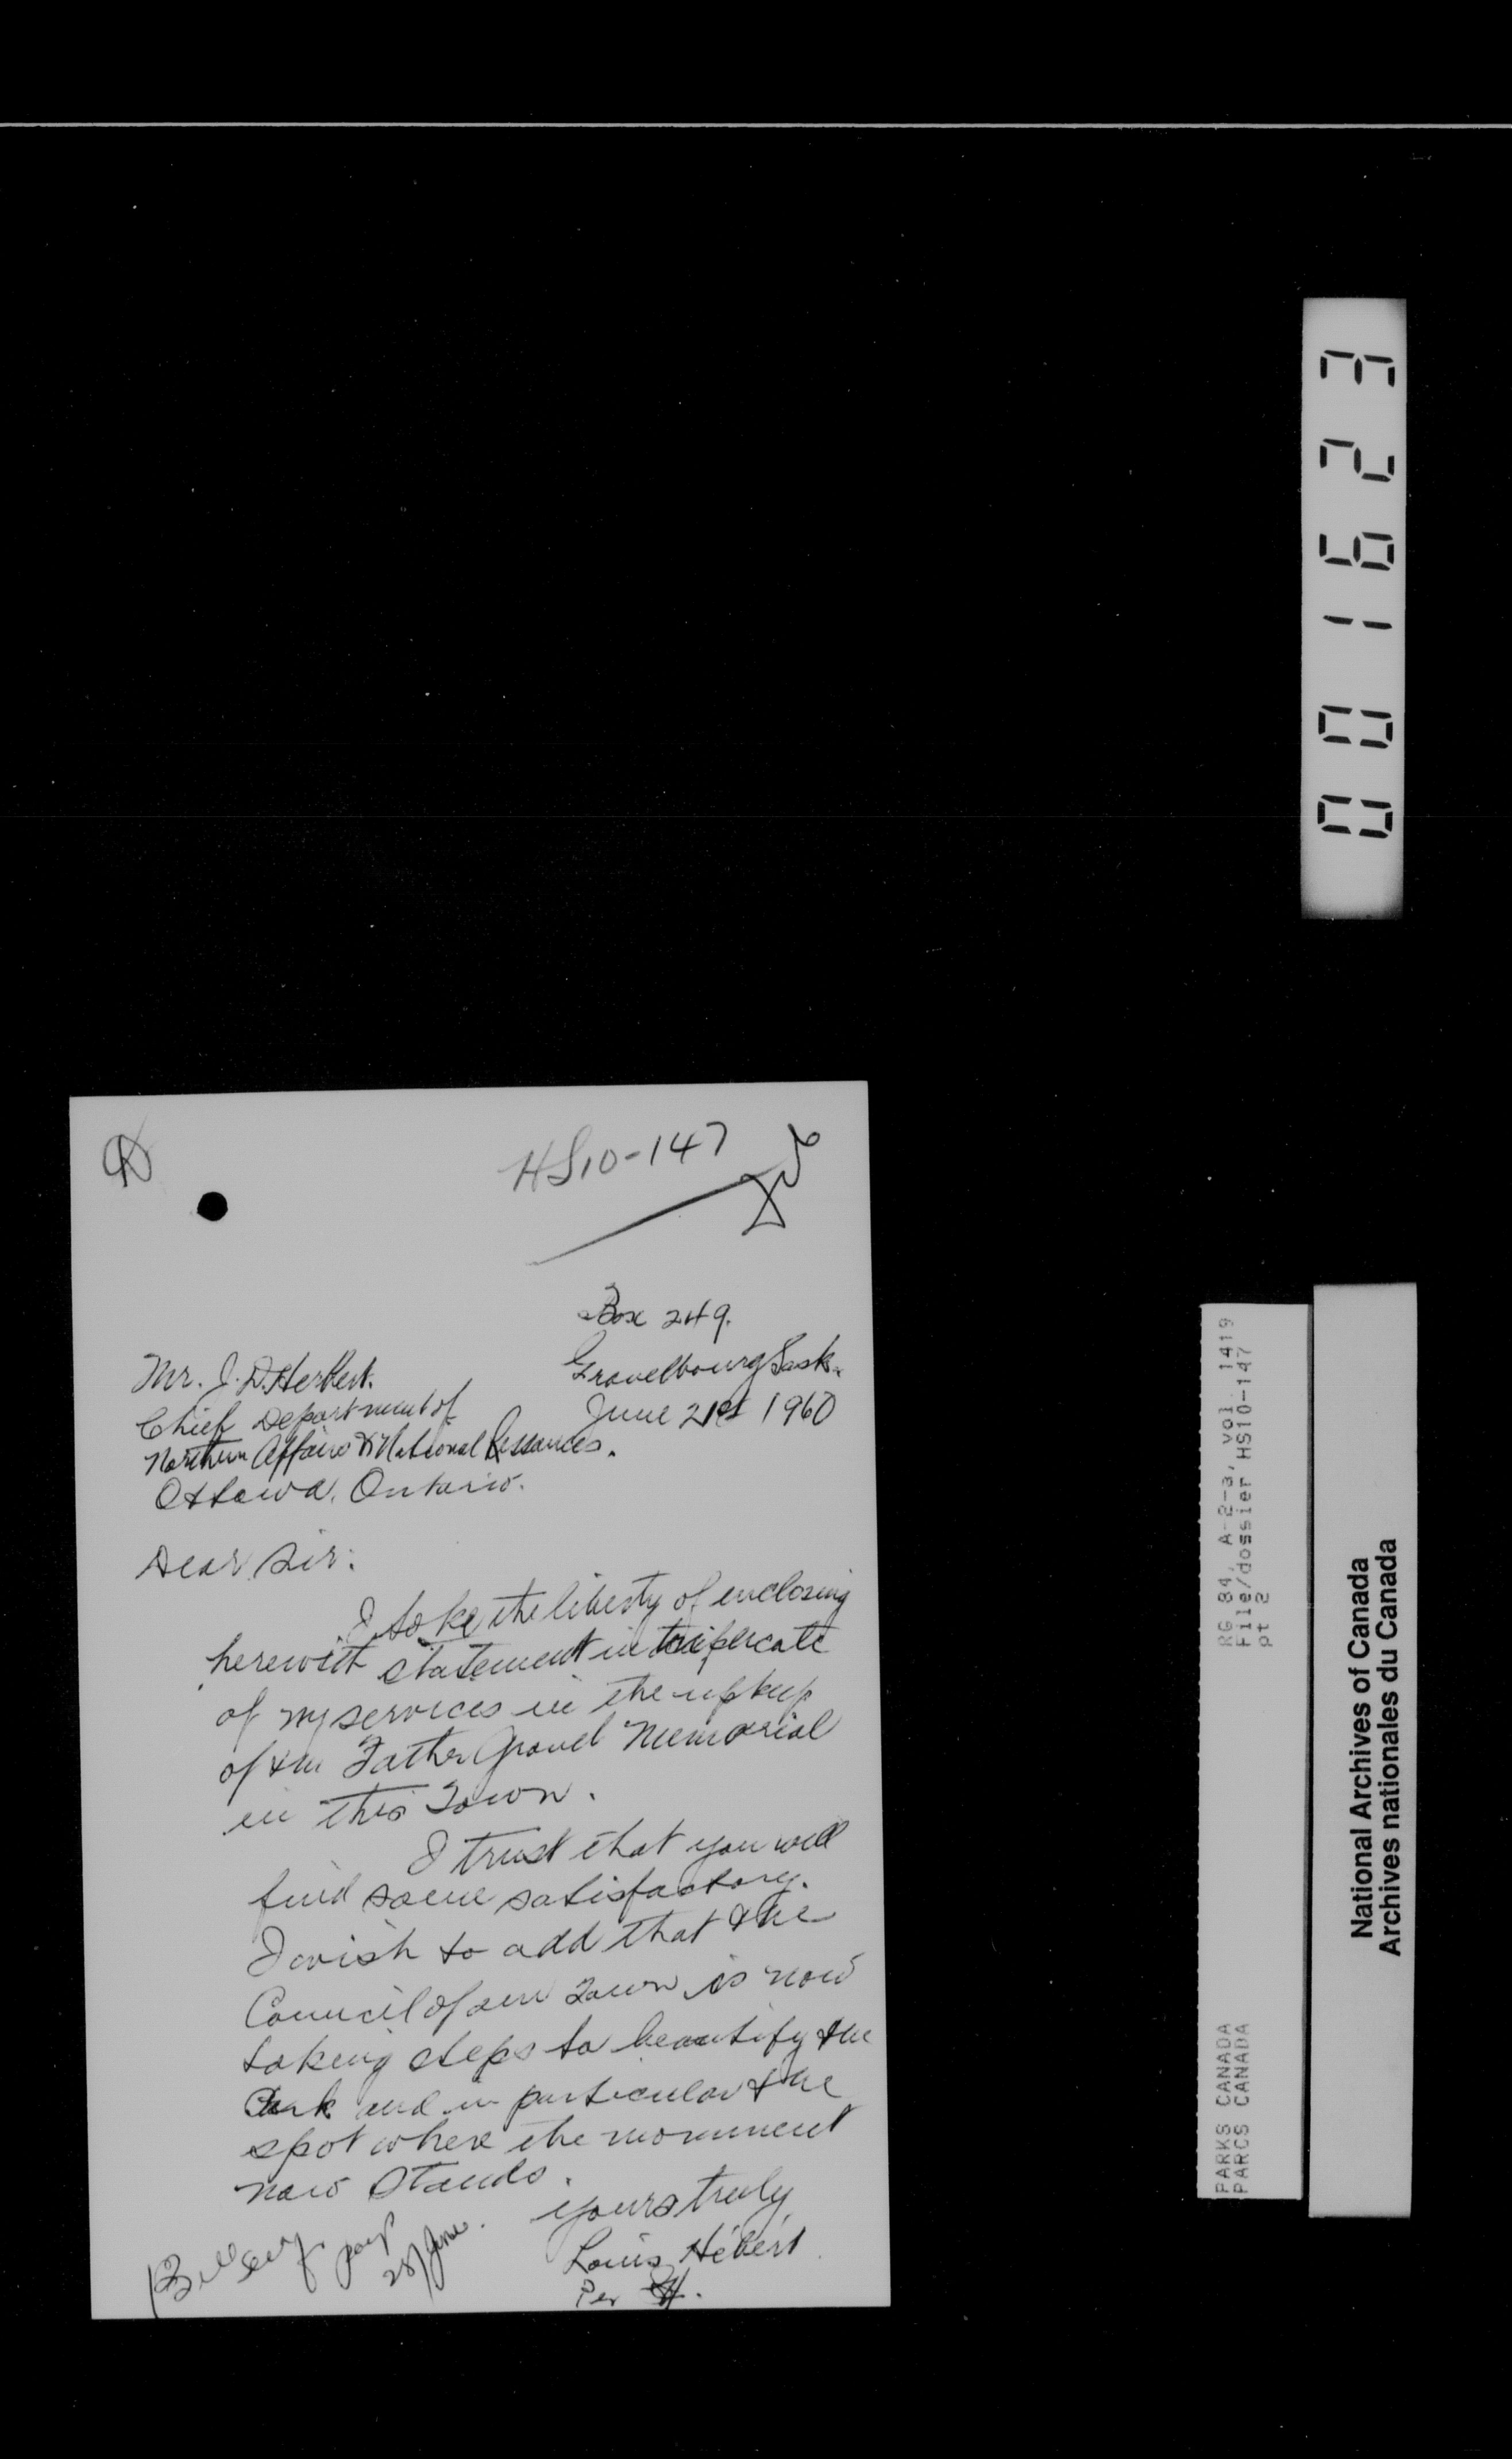 HS10-147
Box 249.
Gravelbourg Sask.
June 21st 1960
Mr. J. D. Herbert.
Chief Department of
Northern Affairs & National Ressources.
Ottawa, Ontario.
Dear Sir:
I take the liberty of enclosing
herewith statement in triplicate
of my services in the upkeep
of the Father Gravel Memorial
in this Town.
I trust that you will
find same satisfactory.
I wish to add that the
Council of our Town is now
taking steps to beautify the
Park and in particular the
spot where the monument
now stands.
Yours truly
Louis Hébert
Per H.
28/June.
001623
RG 84, A-2-3, vol. 1419
File/dossier HS10-147
pt 2
PARKS CANADA
PARCS CANADA
National Archives of Canada
Archives nationales du Canada